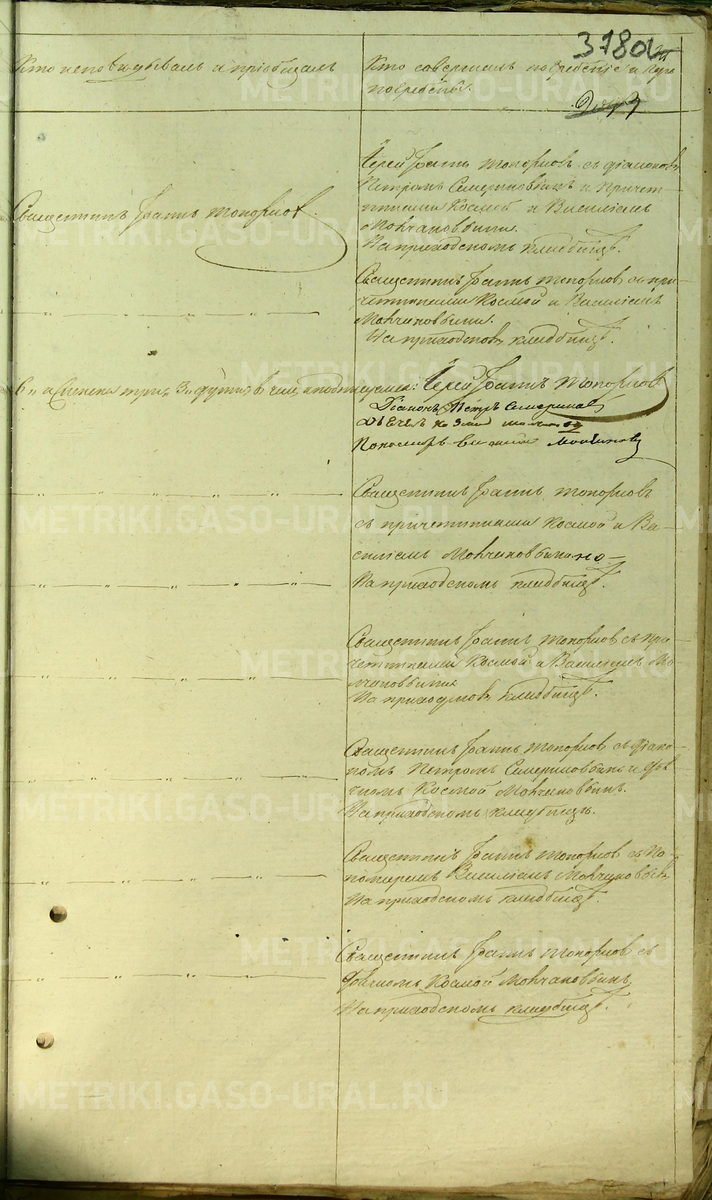 3780
Кто исповѣдывалъ и пріобщалъ
Кто совершалъ погребеніе и гдѣ
погребены.
Іерей Іоаннъ Топорковъ съ діакономъ
Петромъ и причет-
никами Космой и Василіемъ
Молчановыми.
На приходскомъ кладбищѣ.
Священникъ Іоаннъ Топорковъ
Священникъ Іоаннъ Топорковъ съ при-
четниками Космой и Василіемъ
Молчановыми.
На приходскомъ кладбищѣ.
в чемъ и подписуемся: Іерей Іоаннъ Топорковъ
Діаконъ Петръ
Дьячекъ Козма
Пономарь Василій Молчановъ
Священникъ Іоаннъ Топорковъ
съ причетниками Космой и Ва-
силіемъ Молчановыми
На приходскомъ кладбищѣ.
Священникъ Іоаннъ Топорковъ съ при-
четниками Космой и Василіемъ Мол-
чановыми
На приходскомъ кладбищѣ.
Священникъ Іоаннъ Топорковъ съ діако-
номъ Петромъ и дья-
чкомъ Космой Молчановымъ.
На приходскомъ кладбищѣ.
Священникъ Іоаннъ Топорковъ съ по-
номаремъ Василіемъ Молчановымъ
На приходскомъ кладбищѣ.
Священникъ Іоаннъ Топорковъ съ
дьячкомъ Космой Молчановымъ
На приходскомъ кладбищѣ.
METRIKI.GASO-URAL.RU